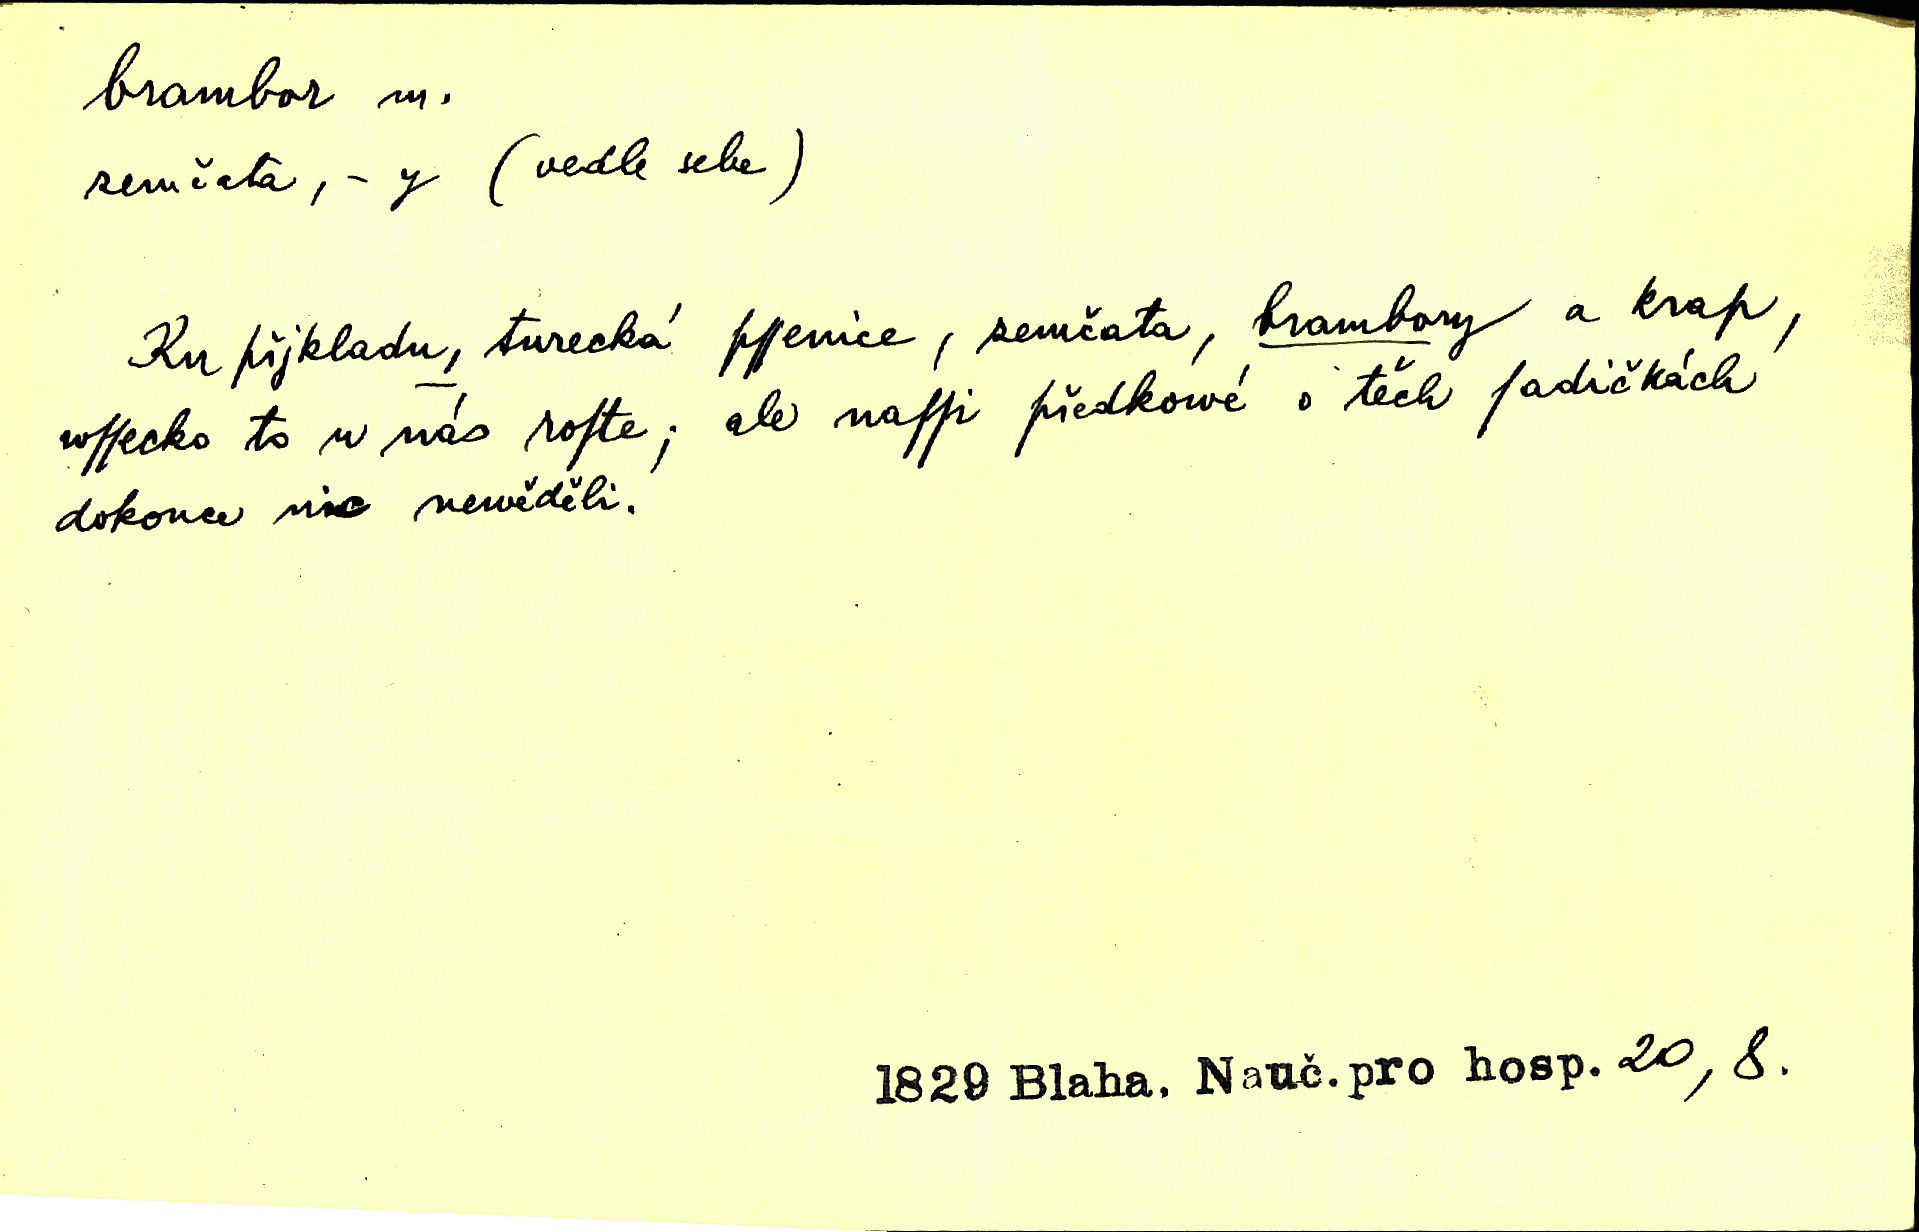 brambor m.
zemčata, -y (vedle sebe)
Ku přjkladu, turecká pſſenice, zemčata, brambory a krap,
wſſecko to u nás roſte; ale naſſi předkowé o těch ſadičkách
dokonce nic newěděli.
1829 Blaha. Nauč. pro hosp. 20, 8.